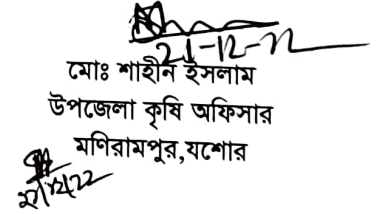 21-12-22
মোঃ শাহীন ইসলাম
উপজেলা কৃষি অফিসার
মণিরামপুর,যশোর